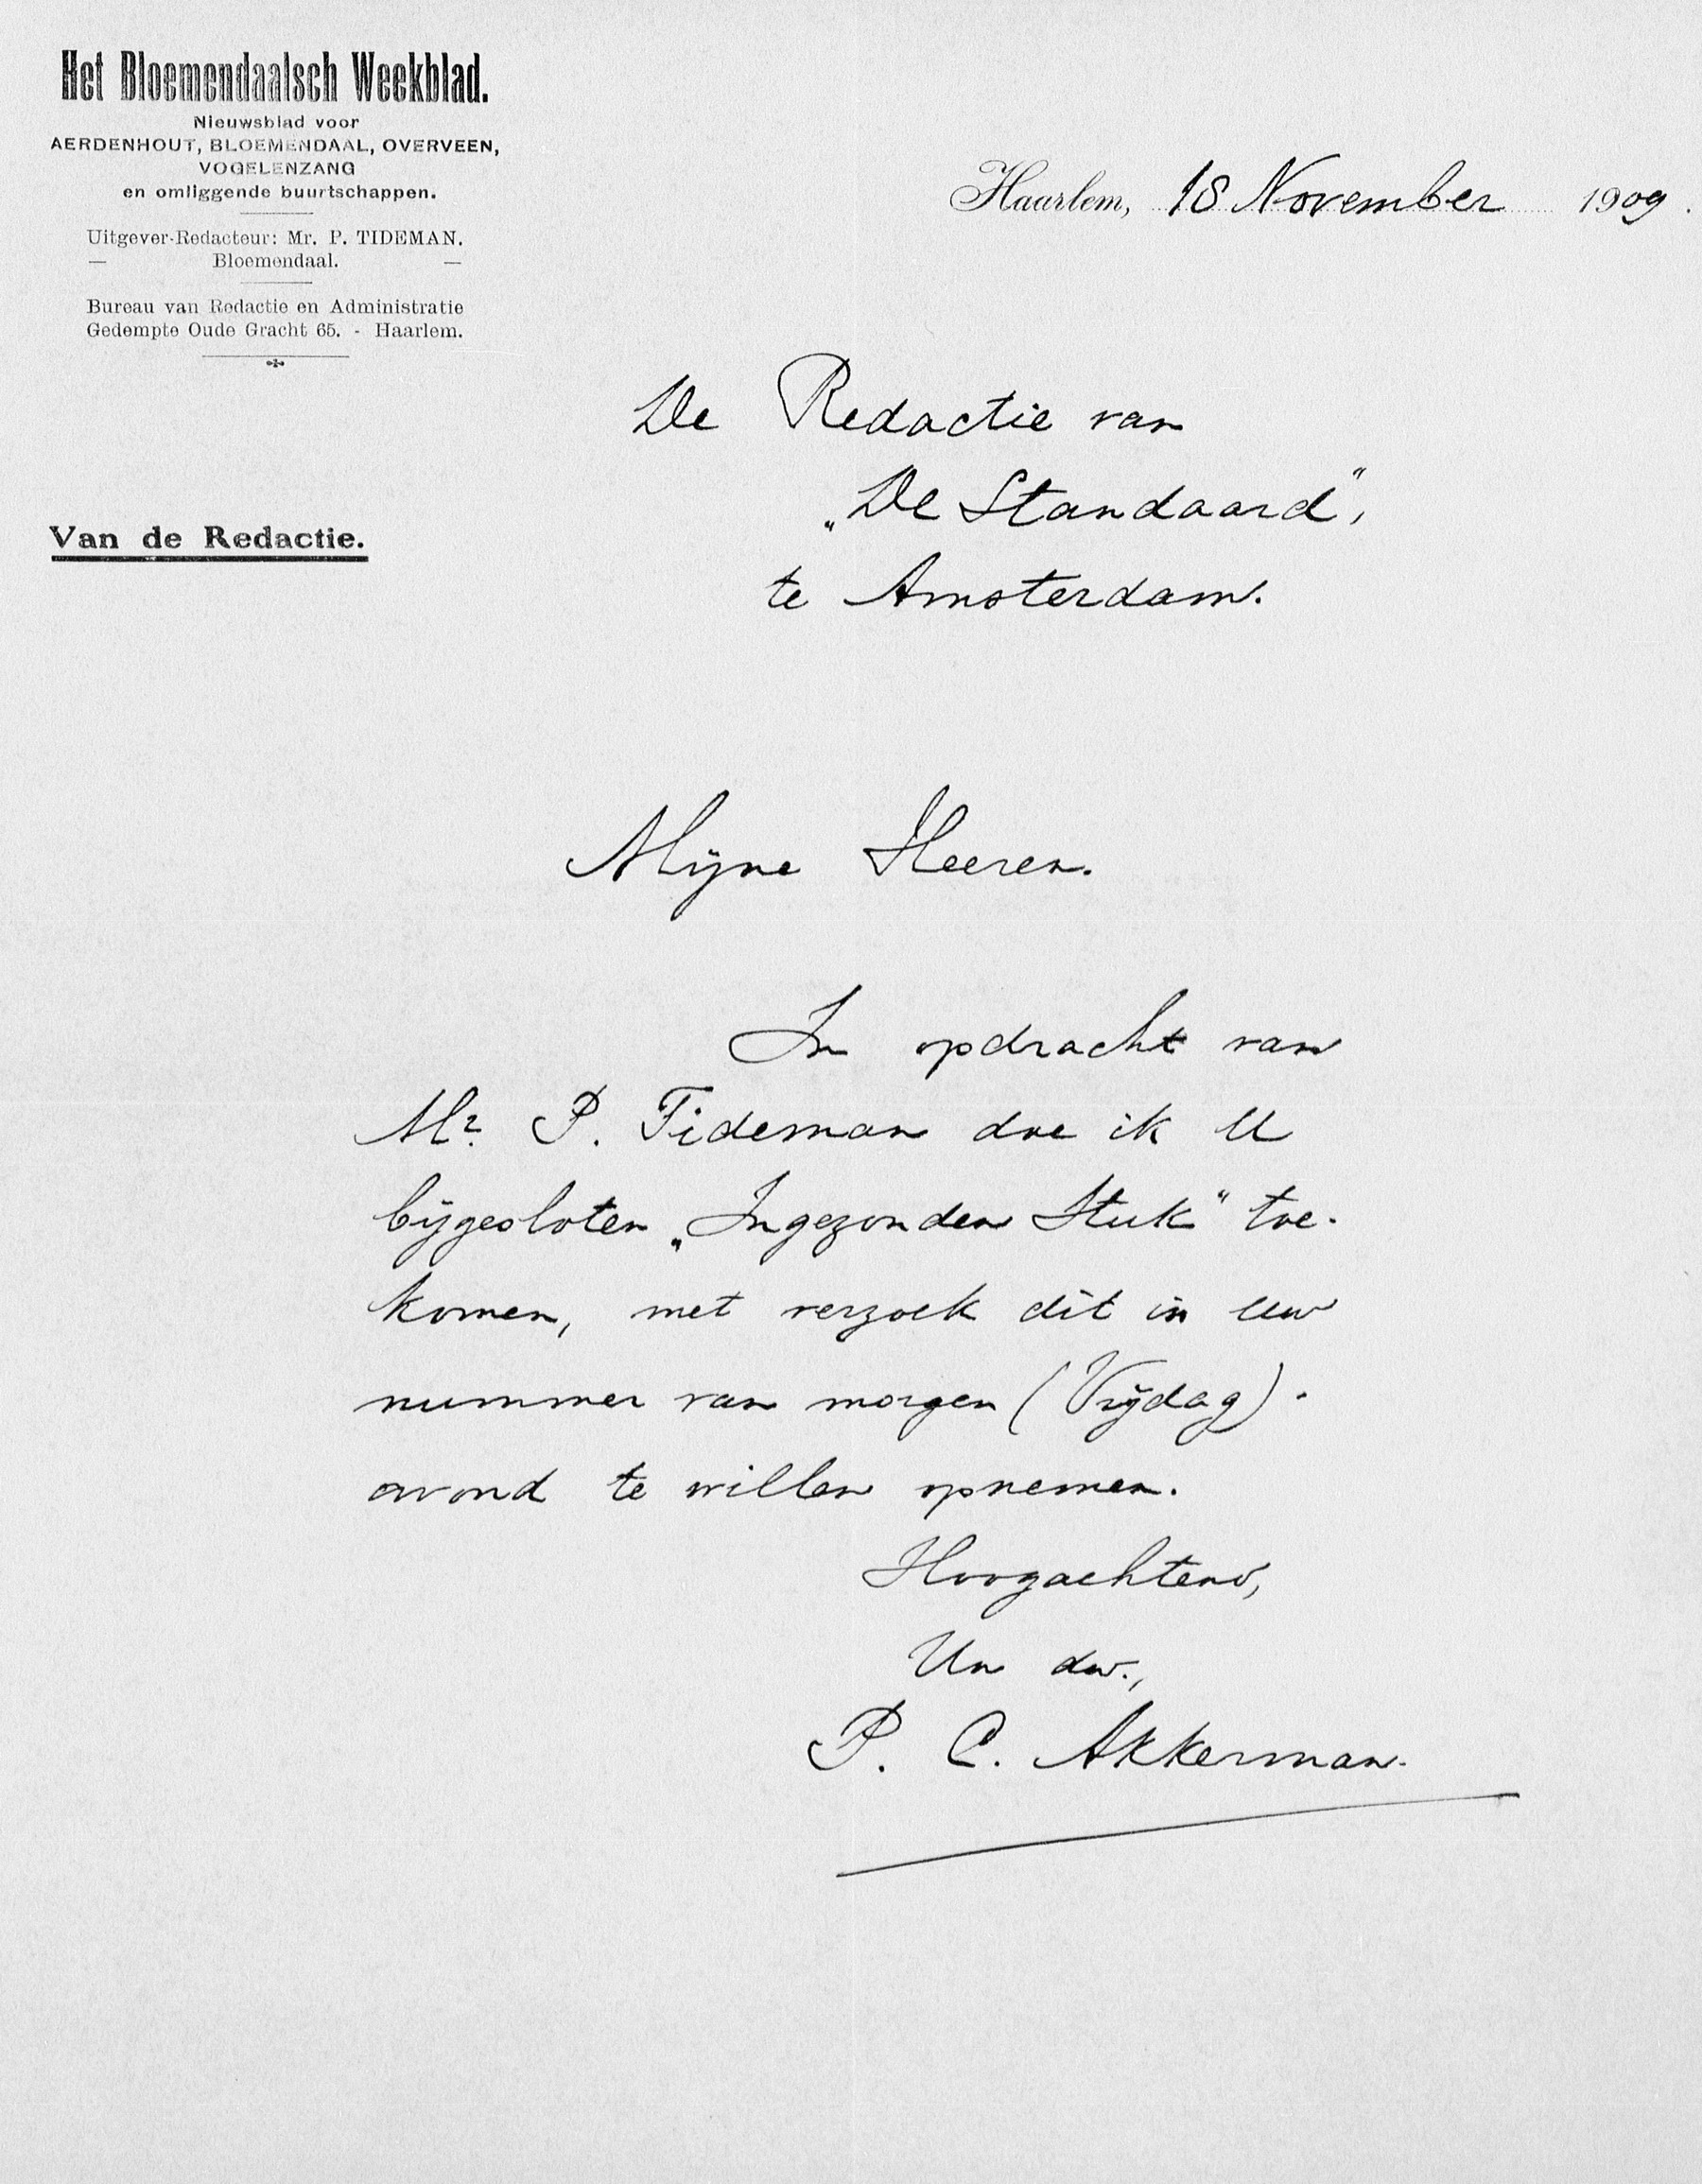 Het Bloemendaalsch Weekblad.
Nieuwsblad voor
AERDENHOUT, BLOEMENDAAL, OVERVEEN,
VOGELENZANG
en omliggende buurtschappen.
Uitgever-Redacteur: Mr. P. TIDEMAN.
— Bloemendaal. —
Bureau van Redactie en Administratie
Gedempte Oude Gracht 65. - Haarlem.
Van de Redactie.
Haarlem, 18 November 1909.
De Redactie van
„De Standaard",
te Amsterdam.
Mijne Heeren.
In opdracht van
Mr. P. Tideman doe ik U
bijgesloten „Ingezonden Stuk" toe-
komen, met verzoek dit in Uw
nummer van morgen (Vrijdag)-
avond te willen opnemen.
Hoogachtend,
Uw dw.,
P. C. Akkerman.